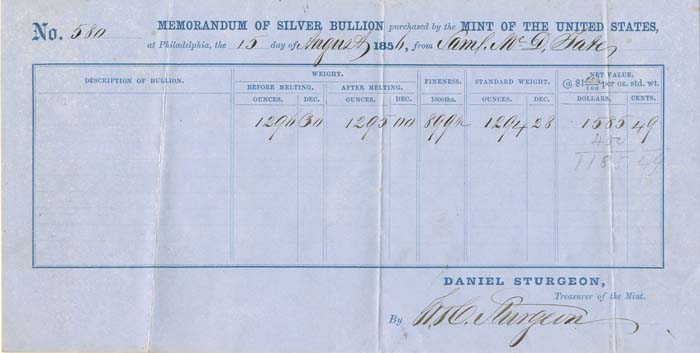 No. 580 MEMORANDUM OF SILVER BULLION purchased by the MINT OF THE UNITED STATES,
at Philadelphia, the 15 day of August 1856, from Saml. Mc D. Tate
DESCRIPTION OF BULLION. WEIGHT. FINENESS. STANDARD WEIGHT. NET VALUE.
BEFORE MELTING. AFTER MELTING. @ $1 per oz. std. wt.
OUNCES. DEC. OUNCES. DEC. 1000ths. OUNCES. DEC. DOLLARS. CENTS.
1296 30 1295 00 899½ 1294 28 1585 49
400
1185 49
DANIEL STURGEON,
Treasurer of the Mint.
By Sturgeon